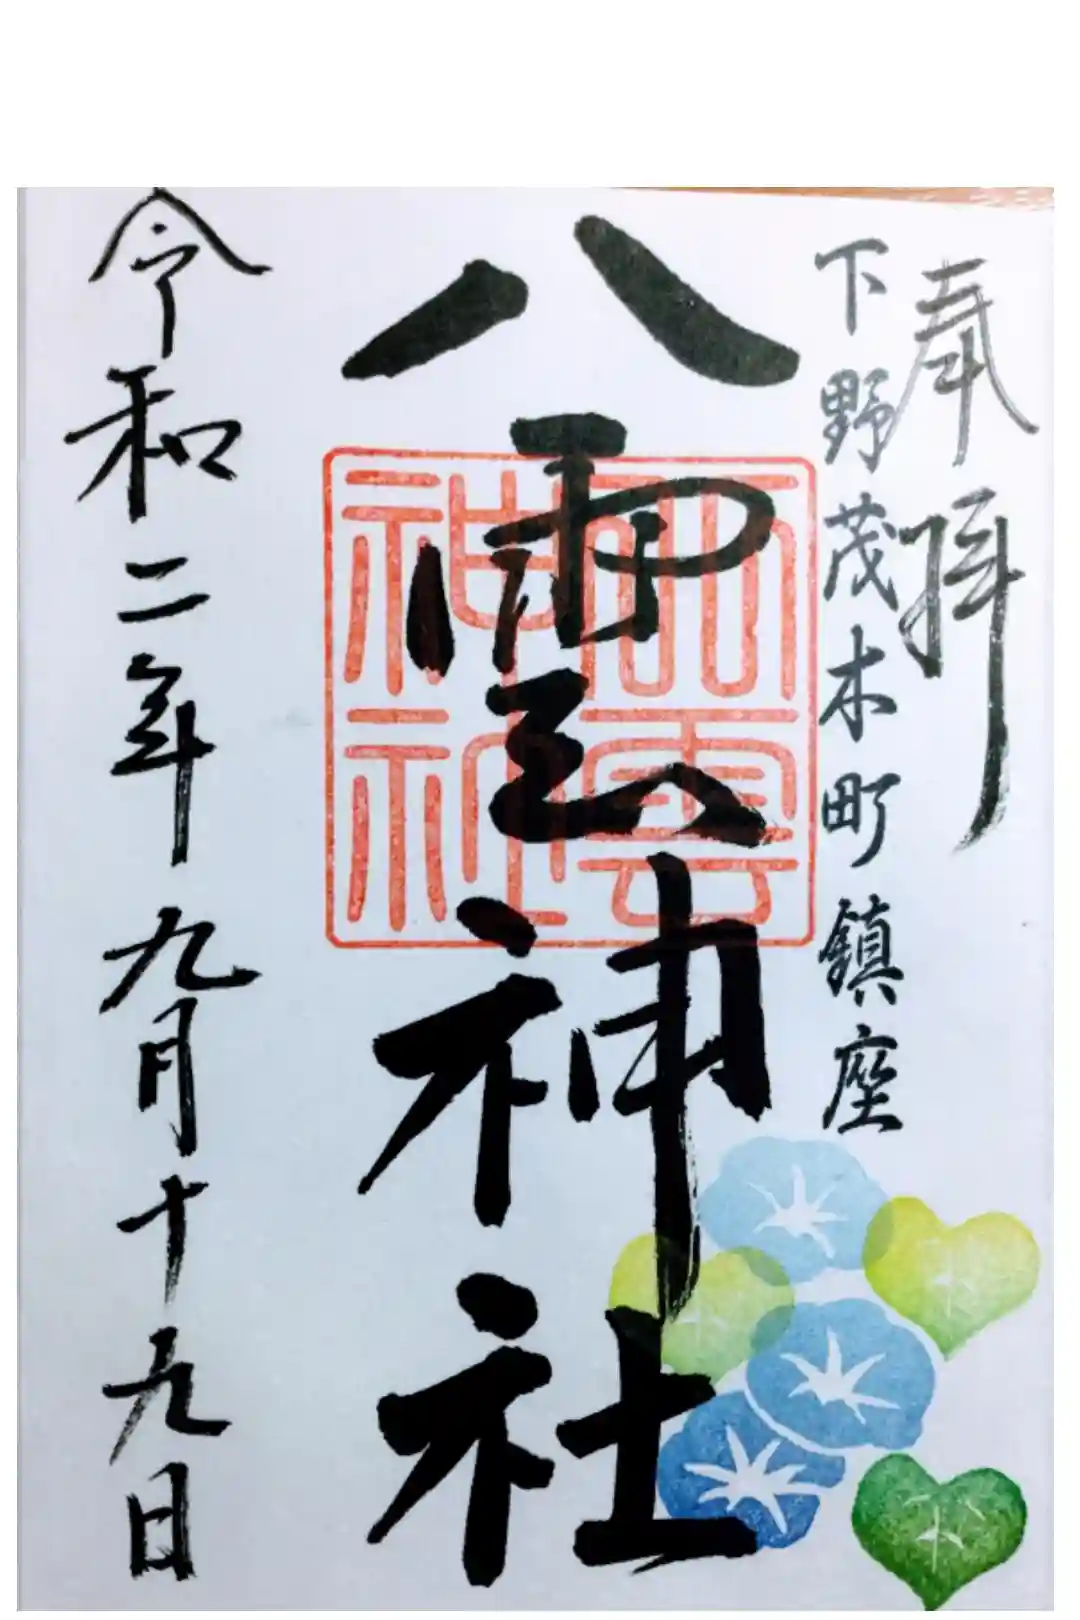 奉拝
下野茂木町鎮座
八雲神社
八雲
神社
令和二年九月十九日